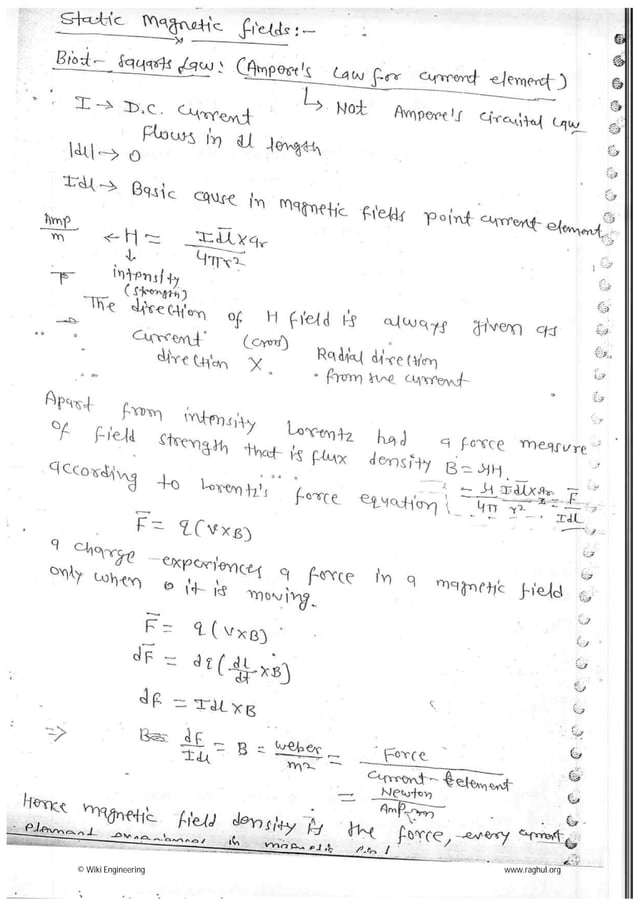 Static Magnetic fields:-
Biot- Savarts Law: (Ampere's Law for current element)
↳ Not Ampere's circuital Law
I → D.C. current
flows in dl length
|dl| → 0
Idl → Basic cause in magnetic fields point current element
Amp/m ← H = I d̅l̅ × ar / 4πr²
↓
intensity
(strength)
The direction of H field is always given as
→ current (cross) Radial direction
direction X. from the current
Apart from intensity Lorentz had a force measure
of field strength that is flux density B = μH.
= μ/4π I d̅l̅ × ar / r² = F̅ / Idl
according to Lorentz's force equation
F̅ = q(V×B)
a charge experiences a force in a magnetic field
only when it is moving.
F̅ = q(V×B)
dF̅ = dq(dl/dt ×B)
df = Idl×B
⇒ B = df/Idl = B = weber/m² = Force / current element
= Newton / Amp-m
Hence magnetic field density is the force, every current
element experiences in magnetic
© Wiki Engineering
www.raghul.org